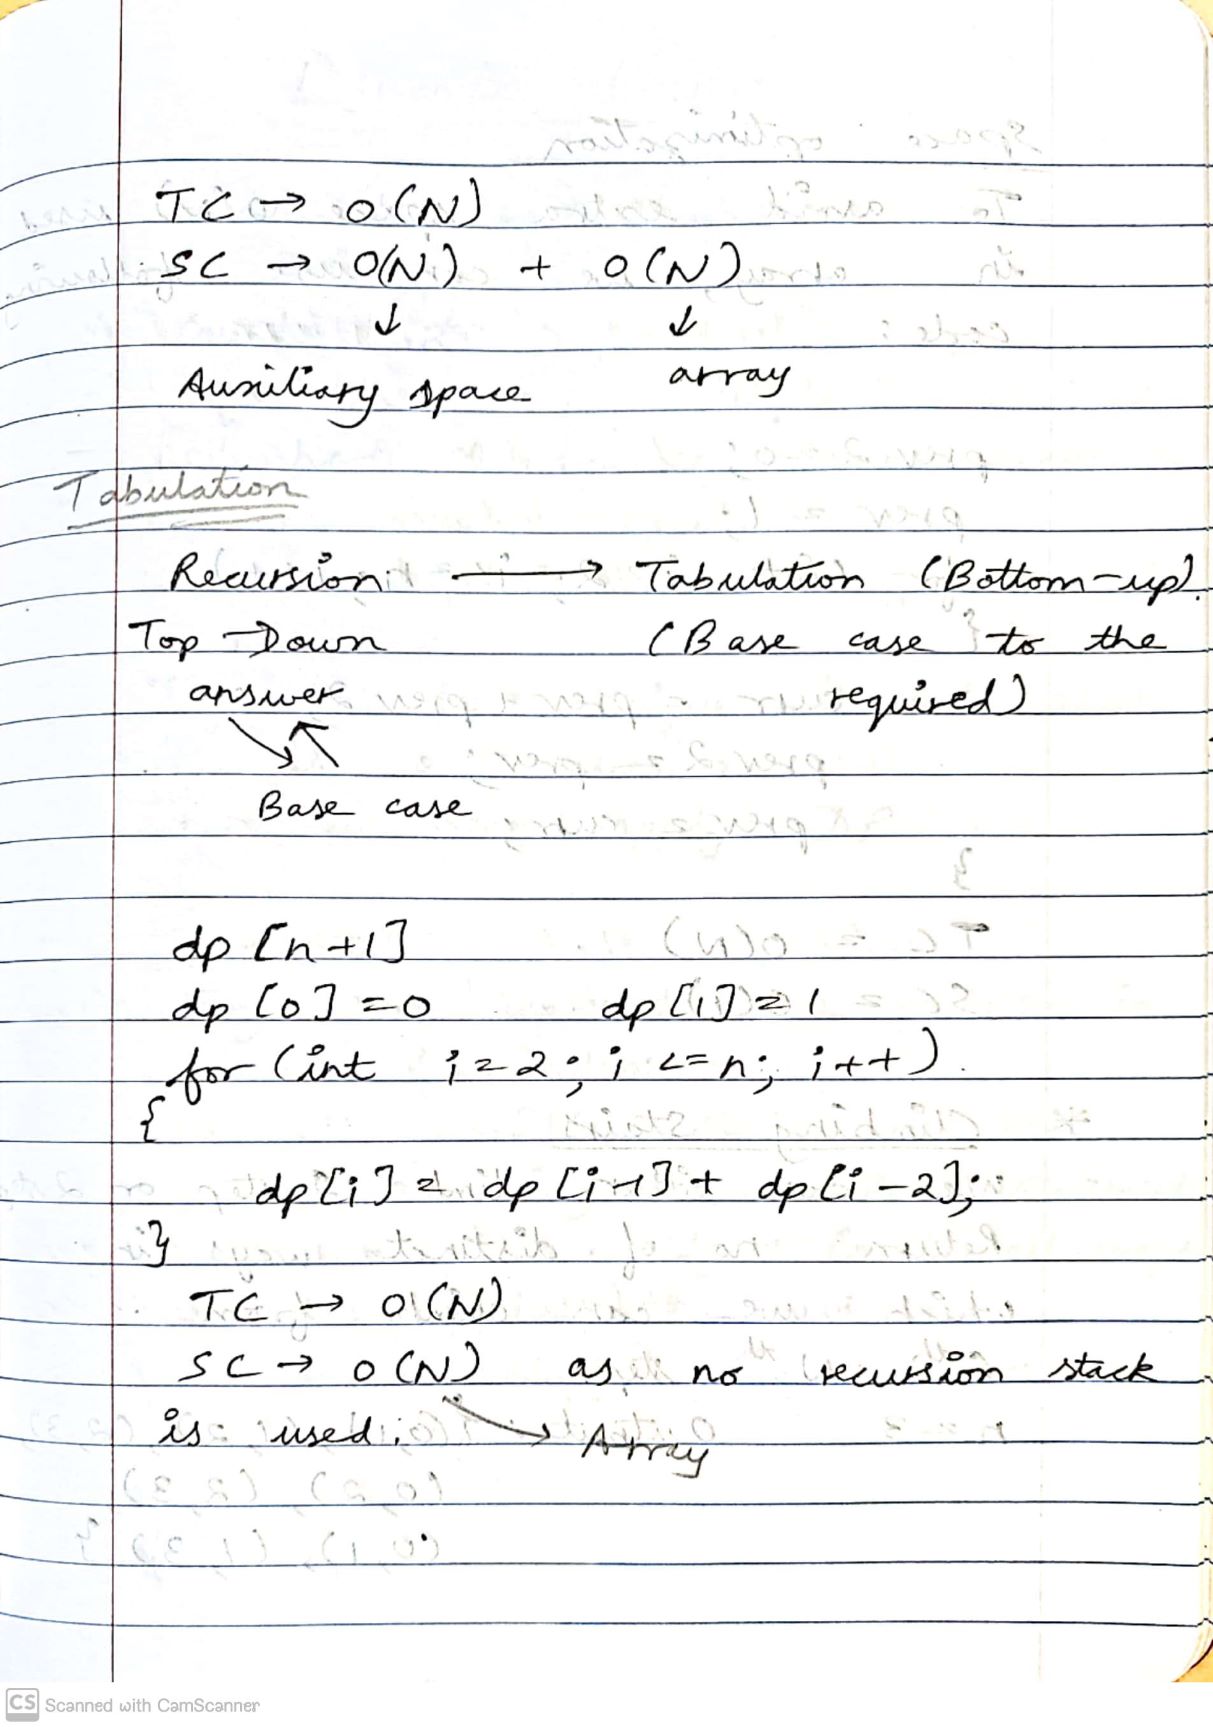 TC → O(N)
SC → O(N) + O(N)
↓ ↓
Auxiliary space array
Tabulation
Recursion ⟶ Tabulation (Bottom-up).
Top-Down (Base case to the
answer required)
Base case
dp [n+1]
dp [0] = 0 dp [1] = 1
for (int i=2; i <=n; i++)
{
dp[i] = dp[i-1] + dp[i-2];
}
TC → O(N)
SC → O(N) as no recursion stack
is used. → Array
CS Scanned with CamScanner